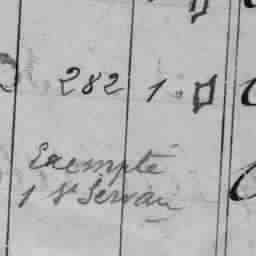 282 1
Exempté
1 St Servan